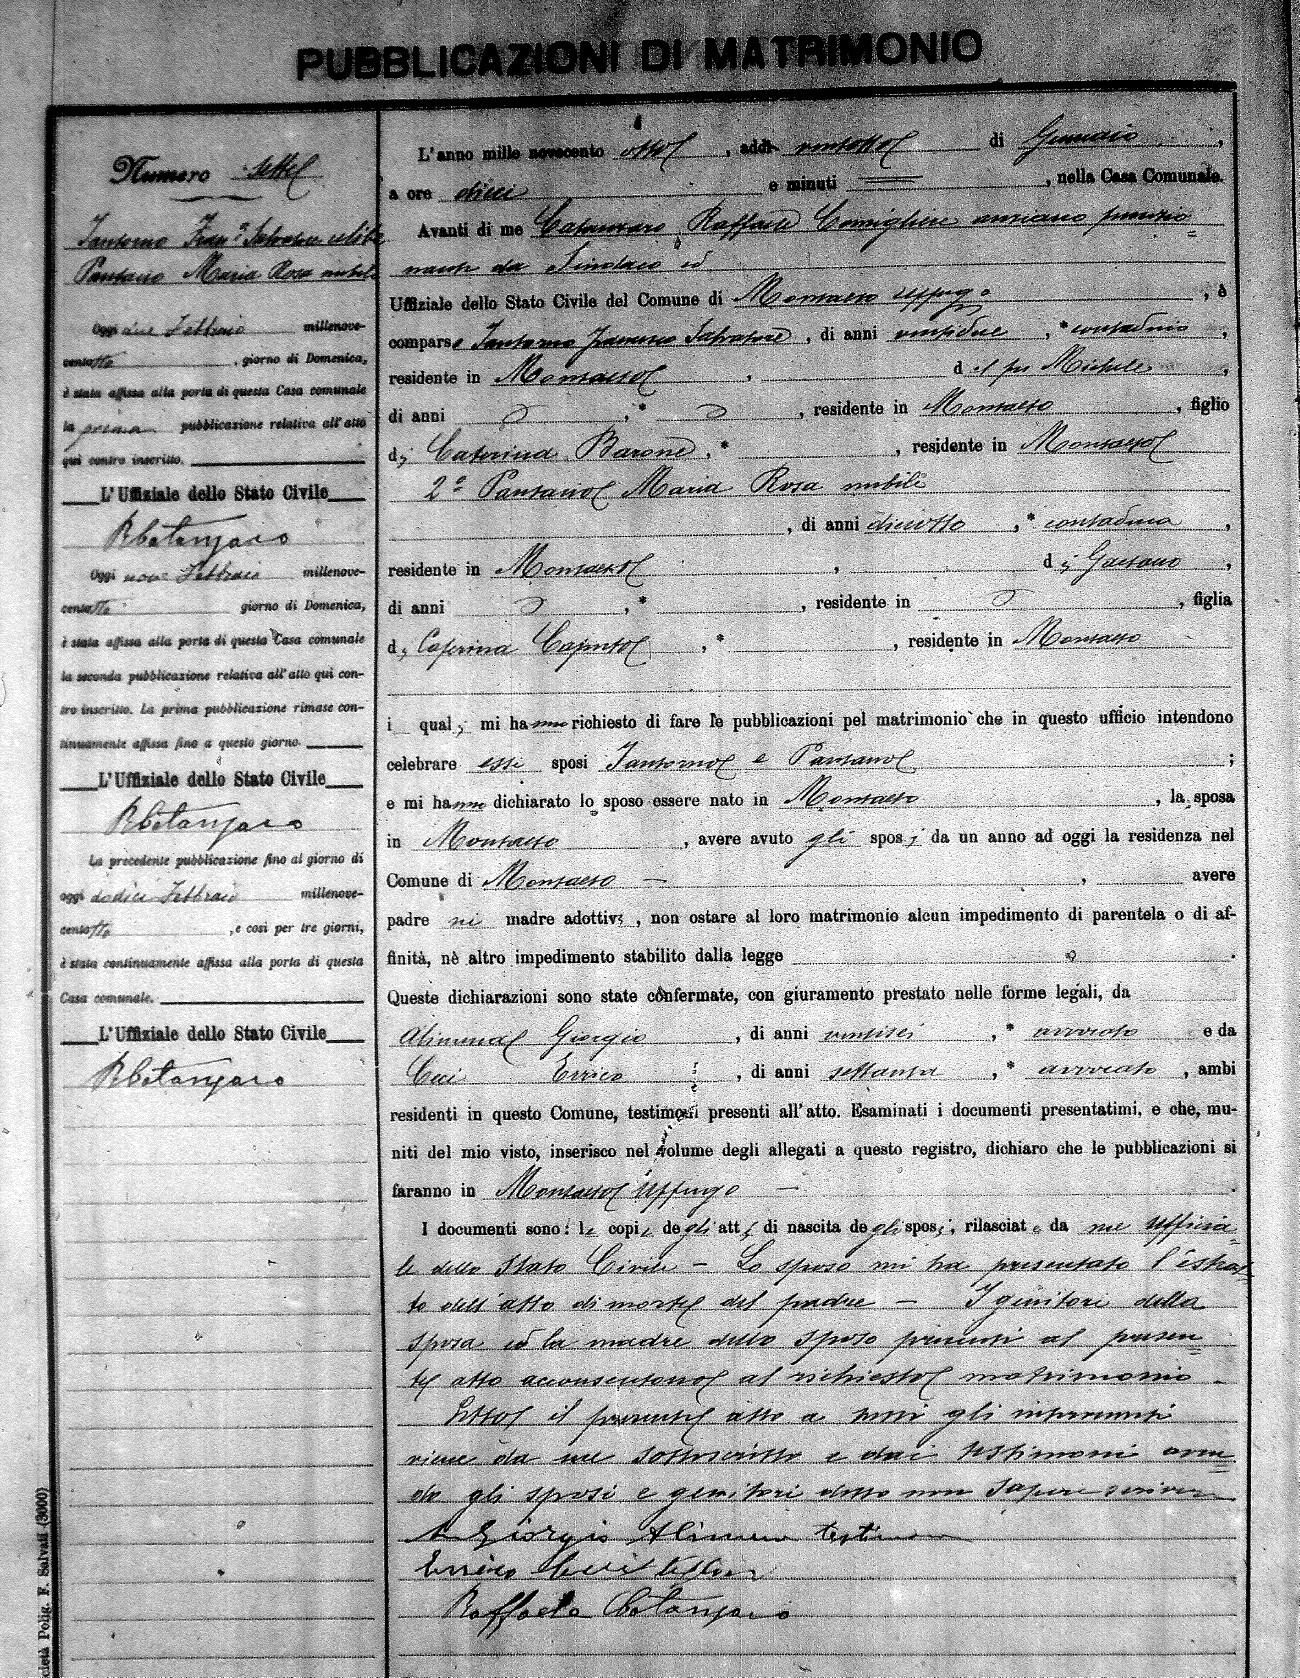 PUBBLICAZIONI DI MATRIMONIO
Numero sette
Santorno Fran.º Salvatore celibe
Pantano Maria Rosa nubile
Oggi due Febbraio millenove-
cento otto, giorno di Domenica,
è stata affissa alla porta di questa Casa comunale
la prima pubblicazione relativa all'atto
qui contro inscritto.
L'Uffiziale dello Stato Civile
RCatanzaro
Oggi nove Febbraio millenove-
cento otto giorno di Domenica,
è stata affissa alla porta di questa Casa comunale
la seconda pubblicazione relativa all'atto qui con-
tro inscritto. La prima pubblicazione rimase con-
tinuamente affissa fino a questo giorno.
L'Uffiziale dello Stato Civile
RCatanzaro
La precedente pubblicazione fino al giorno di
oggi dodici Febbraio millenove-
cento otto, e così per tre giorni,
è stata continuamente affissa alla porta di questa
Casa comunale.
L'Uffiziale dello Stato Civile
RCatanzaro
L'anno mille novecento otto, addì ventotto di Gennaio,
a ore dieci e minuti , nella Casa Comunale.
Avanti di me Catanzaro Raffaele Consigliere anziano funzio
nante da Sindaco ed
Uffiziale dello Stato Civile del Comune di Montalto Uffugo, è
comparso Santorno Francesco Salvatore, di anni ventidue, * contadino,
residente in Montalto, d el fu Michele,
di anni , * , residente in Montalto, figlio
di Caterina Barone, * , residente in Montalto
2º Pantano Maria Rosa nubile
, di anni diciotto, * contadina,
residente in Montalto, di Gaetano,
di anni , * , residente in , figlia
di Caterina Caputo, * , residente in Montalto
i quali mi hanno richiesto di fare le pubblicazioni pel matrimonio che in questo ufficio intendono
celebrare essi sposi Santorno e Pantano;
e mi hanno dichiarato lo sposo essere nato in Montalto, la sposa
in Montalto, avere avuto gli sposi da un anno ad oggi la residenza nel
Comune di Montalto — , avere
padre nè madre adottivi, non ostare al loro matrimonio alcun impedimento di parentela o di af-
finità, nè altro impedimento stabilito dalla legge .
Queste dichiarazioni sono state confermate, con giuramento prestato nelle forme legali, da
Alimena Giorgio, di anni ventisei, * avvocato e da
Ceci Errico, di anni settanta, * avvocato, ambi
residenti in questo Comune, testimoni presenti all'atto. Esaminati i documenti presentatimi, e che, mu-
niti del mio visto, inserisco nel volume degli allegati a questo registro, dichiaro che le pubblicazioni si
faranno in Montalto Uffugo — .
I documenti sono: le copie degli atti di nascita degli sposi, rilasciate da me Ufficia-
le dello Stato Civile – Lo sposo mi ha presentato l'estrat-
to dell'atto di morte del padre — I genitori della
sposa ed la madre dello sposo presenti al presen
te atto acconsentono al richiesto matrimonio.
Letto il presente atto a tutti gli intervenuti
viene da me sottoscritto e dai testimoni aven
do gli sposi e genitori detto non sapere scrivere
Giorgio Alimena testimone
Errico Ceci
Raffaele Catanzaro
cietà Polig. F. Salvati (3000)